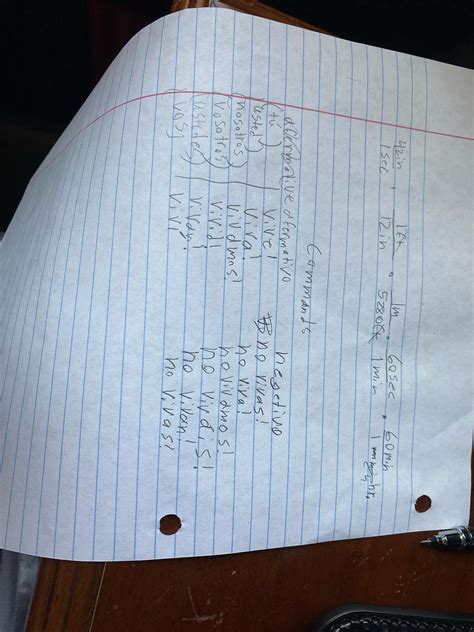 42in . 1ft . 1m . 60sec . 60min
1sec 12in 5280ft 1min 1 hr.
Commands
afermative afermativo negetivo
(tú) vive! no vivas!
(usted) viva! no viva!
(nosotros) vivamos! no vivamos!
(vosotros) vivid! no vivais!
(ustedes) vivan! no vivan!
(vos) vivi! no vivas!